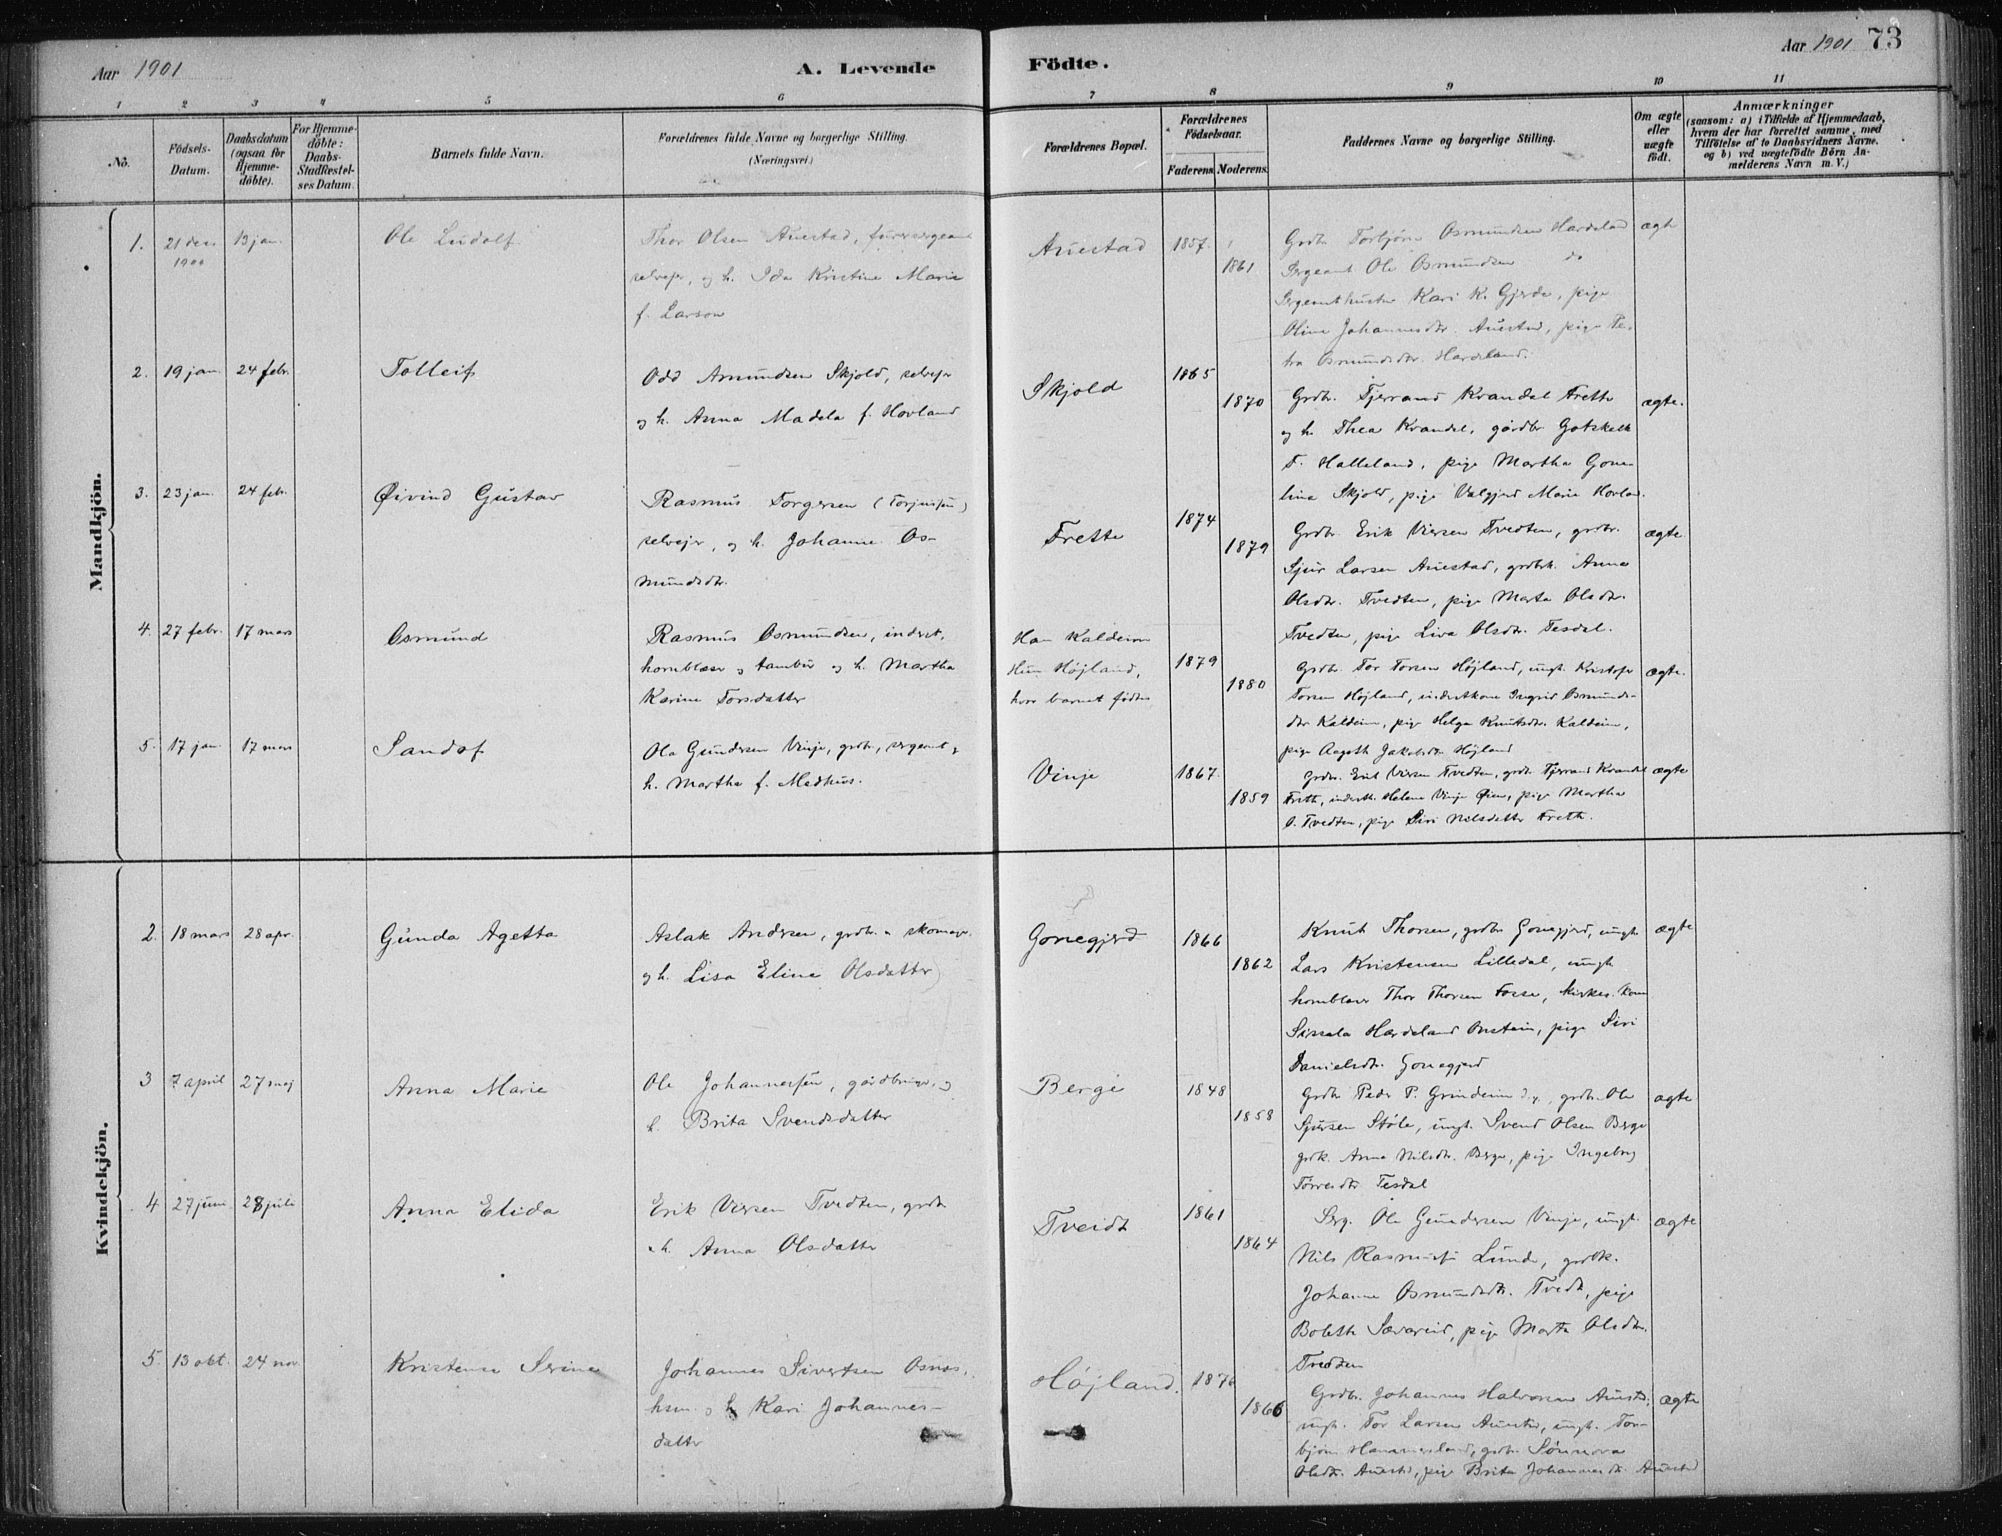 Aar 1901
A. Levende
Födte.
Aar 1901 73
1 2 3 4 5 6 7 8 9 10 11
No.
Födsels-Datum.
Daabsdatum (ogsaa for Hjemme-döbte).
For Hjemme-döbte: Daabs-Stadfæstel-ses Datum
Barnets fulde Navn.
Forældrenes fulde Navne og borgerlige Stilling.
(Næringsvei.)
Forældrenes Bopæl.
Forældrenes Födselsaar.
Faderens. Moderens.
Faddernes Navne og borgerlige Stilling.
Om ægte eller uægte födt.
Anmærkninger
(saasom: a) i Tilfælde af Hjemmedaab,
hvem der har forrettet samme, med
Tilföielse af to Daabsvidners Navne.
og b) ved uægtefödte Börn An-
melderens Navn m. V.)
Mandkjön.
1. 21 dec 1900 13 jan. Ole Ludolf
Thor Olsen Auestad,
selvejer, og h. Ida Kristine Marie
f. Larson
Auestad 1857. 1861
Grdbr. Torbjörn Osmundsen Hardeland
Sergeant Ole Osmundsen do
Sergeanthustru Kari K. Gjerde, pige
Oline Johannesdtr. Auestad, pige Pe-
tra Osmundsdtr. Hardeland.
ægte
2. 19 jan. 24 febr. Tolleif
Odd Amundsen Skjold, selvejer
og h. Anna Madela f. Hovland
Skjold 1865 1870
Grdbr. Tjerrand Kvandal Frette
og h. Thea Kvandal, gårdbr Gotskalk
T. Halleland, pige Martha Gone-
lina Skjold, pige Valgjerd Marie Hovland.
ægte.
3. 23 jan. 24 febr. Øivind Gustav
Rasmus Torgersen (Torjussen)
selvejer, og h. Johanne Os-
mundsdtr.
Frette 1874 1879
Grdbr Erik Viersen Tvedten, grdbr.
Sjur Larsen Auestad, grdbrk. Anna
Olsdtr. Tvedten, pige Marta Olsdtr.
Tvedten, pige Liva Olsdtr. Tesdal.
ægte
4. 27 febr. 17 mars Osmund
Rasmus Osmundsen, inderst,
hornblæser og tambur og h. Martha
Karine Torsdatter
Han Kaldeim
Hun Højland,
hvor barnet fødtes
1879 1880
Grdbr Tor Torsen Højland, ungk. Kristofer
Torsen Højland, inderstkone Ingrid Osmunds-
dtr Kaldeim, pige Helga Knutsdtr. Kaldeim,
pige Aagoth Jakobsdtr Højland
ægte.
5. 17 jan. 17 mars Sandof
Ole Gundersen Vinje, grdbr, sergeant og
h. Martha f. Medhus.
Vinje 1867. 1859
Grdbr. Erik Viersen Tvedten, grdbr Tjerrand Kvandal
Freth, inderstk. Helene Vinje Øien, pige Martha
O. Tvedten, pige Siri Nilsdatter Freth.
ægte
Kvindekjön.
2. 18 mars 28 apr. Gunda Agetta
Aslak Andersen, grdbr. & skomager
og h. Lisa Elina Olsdatter
Gonegjerd 1866 1862
Knut Thorsen, grdbr Gonegjerd, ungk.
Lars Kristensen Lilledal, ungk.
hornblæser Thor Thorsen Fosse, kirkes. kone
Sissela Hardeland Onstein, pige Siri
Danielsdtr Gonegjerd
ægte
3 7 april 27 maj Anna Marie
Ole Johannessen, gårdbruger, og
h. Brita Svendsdatter
Berge 1848 1858
Grdbr Peder P. Grindeim d.y., grdbr. Ole
Sjursen Støle, ungk. Svend Olsen Berge
grdk. Anna Nilsdtr. Berge, pige Ingeborg
Torresdtr Tesdal
ægte
4 27 juni 28 juli Anna Elida
Erik Viersen Tvedten, grdbr
& h. Anna Olsdatter
Tveidt 1861 1864
Serg. Ole Gundersen Vinje, ungk.
Nils Rasmussen Lunde, grdbk.
Johanne Osmundsdtr. Tvedt, pige
Boleth Sævareid, pige Marta Olsdtr.
Tvedten
ægte
5. 13 okt. 24 nov. Kristense Serine
Johannes Sivertsen Osnes,
hsm. og h Kari Johannes-
datter
Højland. 1876 1866
Grdbr. Johannes Halvorsen Auestad,
ungk. Tor Larsen Auestad, ungk. Tor-
björn Hammersland, grdbr. Sönnova
Olsdtr. Auestad, pige Brita Johannesdtr. Auestad
ægte